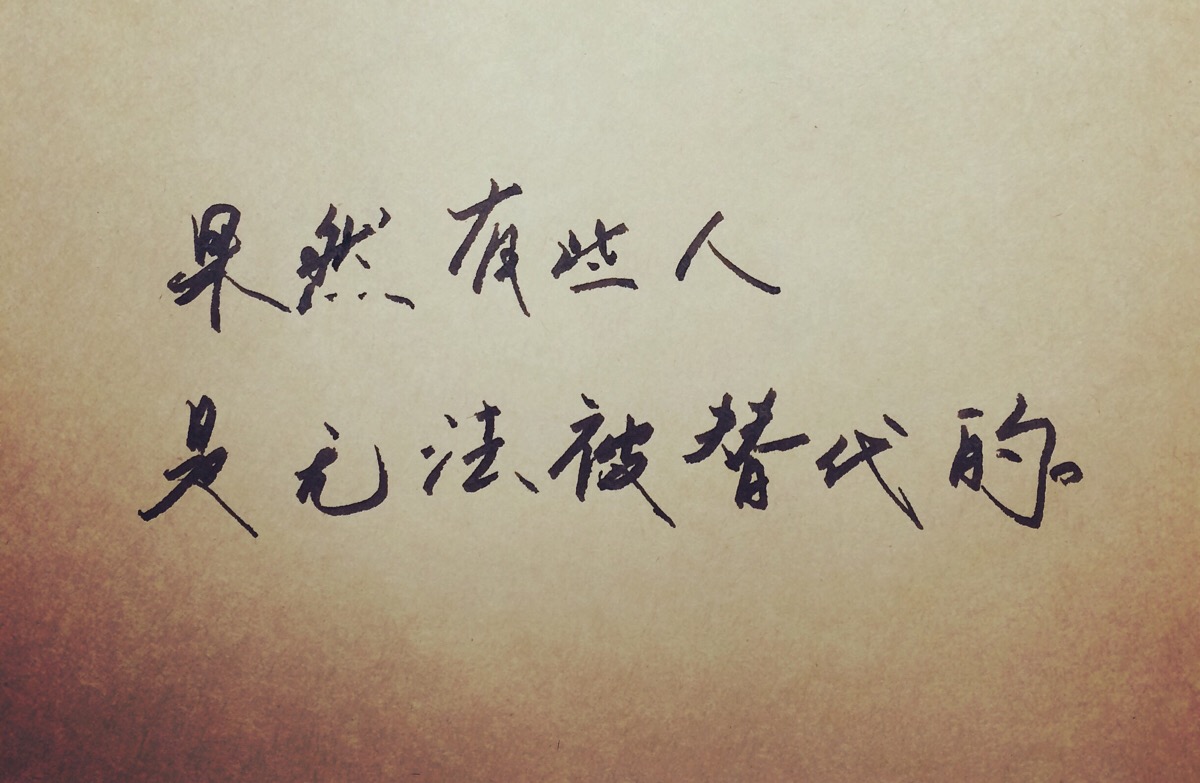 果然有些人
是无法被替代的。